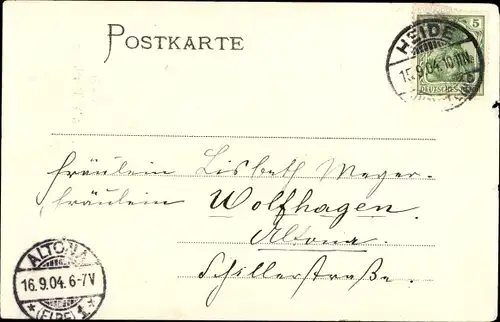 POSTKARTE
5
HEIDE
15.9.04.10
DEUTSCHES
Fräulein Lisbeth Meyer-
Fräulein Wolfhagen.
Altona.
Schillerstraße.
ALTONA
16.9.04. 6-7V
* (ELBE) 1 *